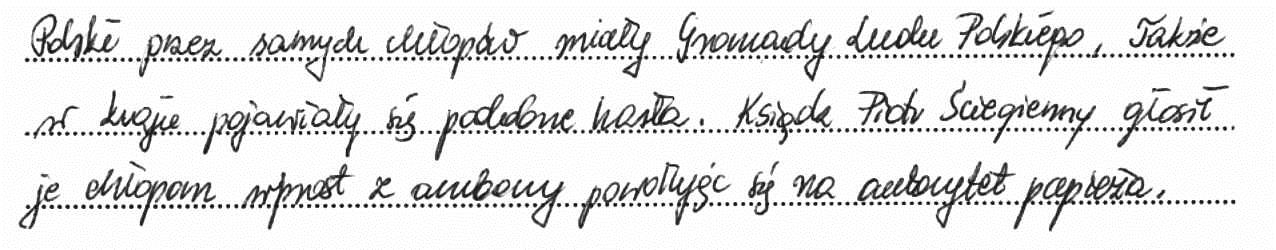 Polskę przez samych chłopów miały Gromady Ludu Polskiego. Także
w kraju pojawiały się podobne hasła. Ksiądz Piotr Ściegienny głosił
je chłopom wprost z ambony powołując się na autorytet papieża.